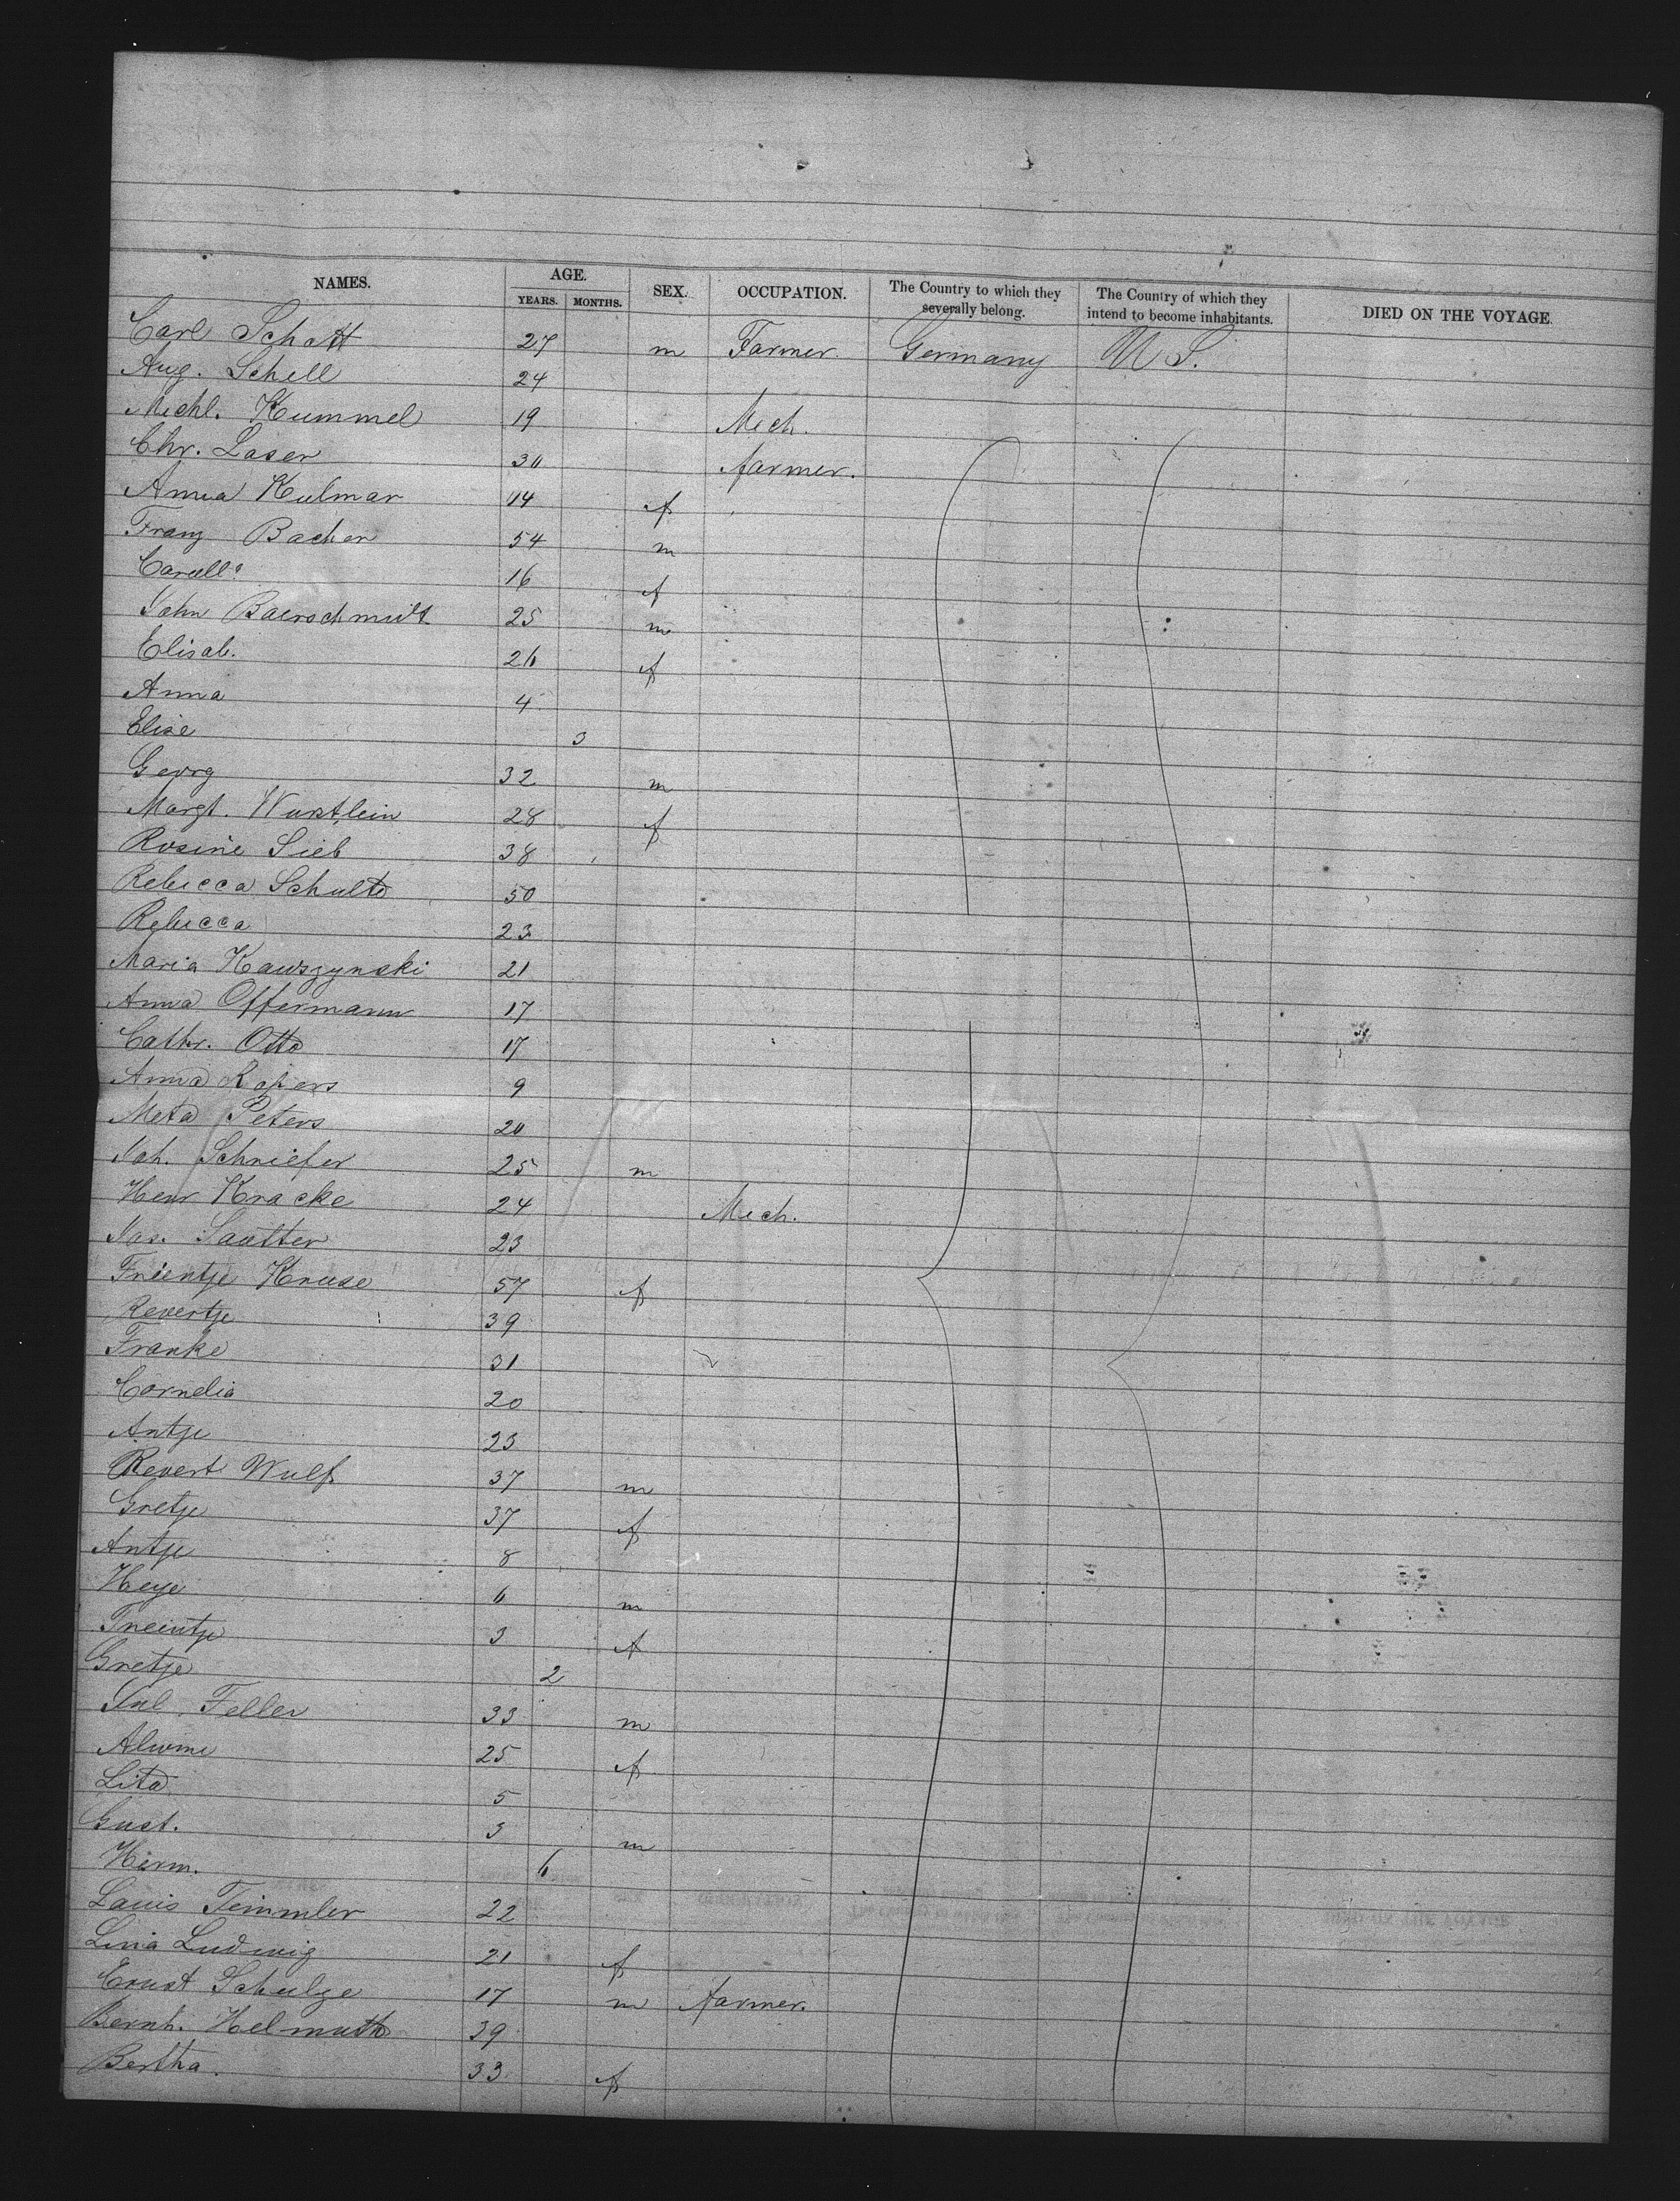 NAMES. AGE. SEX. OCCUPATION. The Country to which they severally belong. The Country of which they intend to become inhabitants. DIED ON THE VOYAGE.
YEARS. MONTHS.
Carl Schott 27 m Farmer. Germany U S.
Aug. Schell 24
Michl. Kummel 19 Mech.
Chr. Laser 30 farmer.
Anna Kulmar 14 f
Franz Bacher 54 m
16 f
John Baerschmidt 25 m
Elisab. 26 f
Anna 4
Elise 3
Georg 32 m
Margt. Wurstlein 28 f
Rosine Sieb 38
Rebecca Schults 50
Rebecca 23
Maria Kawszynski 21
Anna Offermann 17
Cathr. Otto 17
Anna Ropers 9
Meta Peters 20
Joh. Schriefer 25 m
Henr Kracke 24 Mech.
Jos. Sautter 23
Trientje Kruse 57 f
Revertje 39
Franke 31
Cornelia 20
Antje 23
Revert Wulf 37 m
Gretje 37 f
Antje 8
Heye 6 m
Treintje 3 f
Gretje 2
Jul. Feller 33 m
Alwine 25 f
Lita 5
Gust. 3 m
Herm. 6
Louis Temmler 22
Lina Ludwig 21 f
Ernst Schulze 17 m farmer.
Bernh. Helmuth 39
Bertha. 33 f